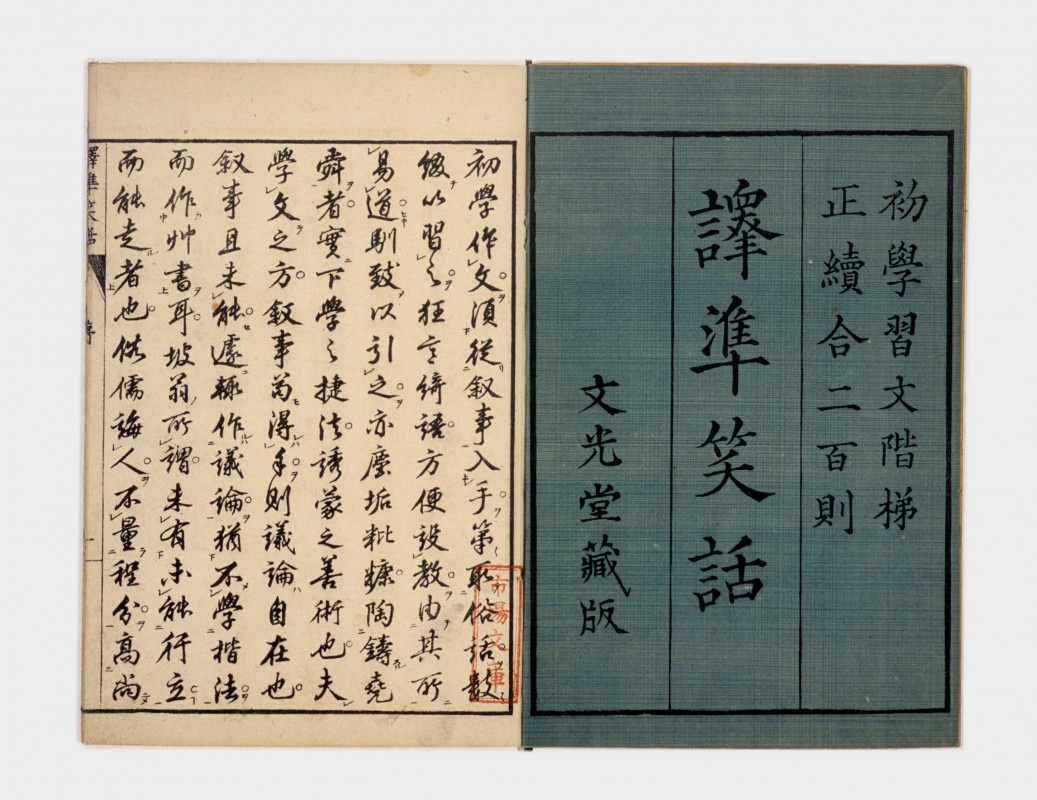 初學習文階梯
正續合二百則
譯準笑話
文光堂藏版
初學作文須從叙事入手第取俗話數
綴以習之狂言綺語方便設教由其所
易道馴致以引之亦塵垢粃糠陶鑄堯
舜者實下學之捷法誘蒙之善術也夫
學文之方叙事苟得手則議論自在也
叙事且未能遽輒作議論猶不學楷法
而作艸書耳坡翁所謂未有未能行立
而能走者也俗儒誨人不量程分高尚
譯準笑話 序 一